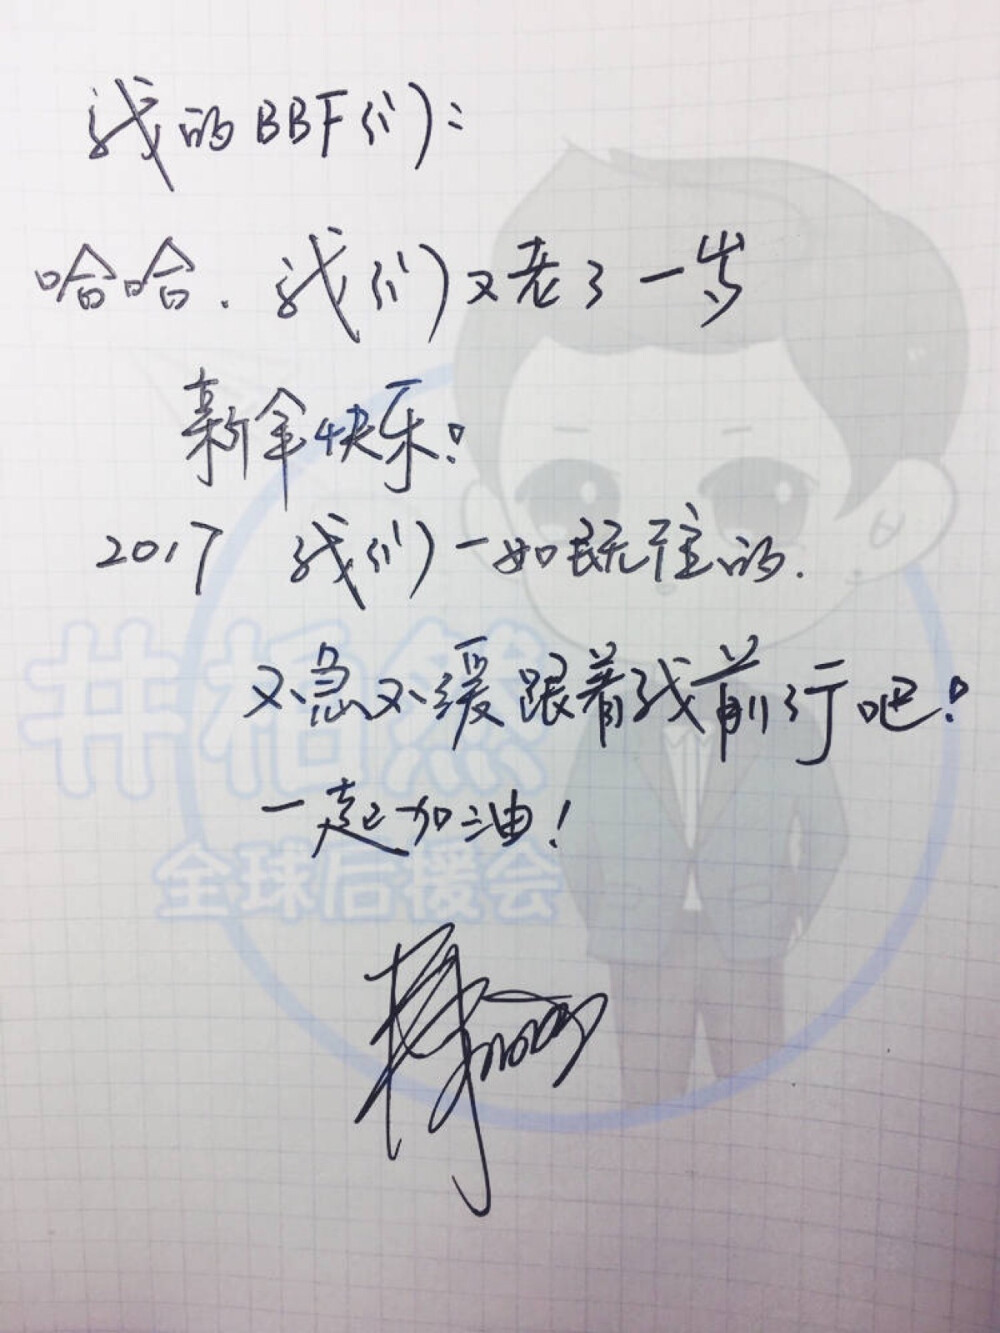 我的BBF们：
哈哈．我们又老了一岁
新年快乐！
2017 我们一如既往的．
不急不缓跟着我前行吧！
一起加油！
井柏然
全球后援会